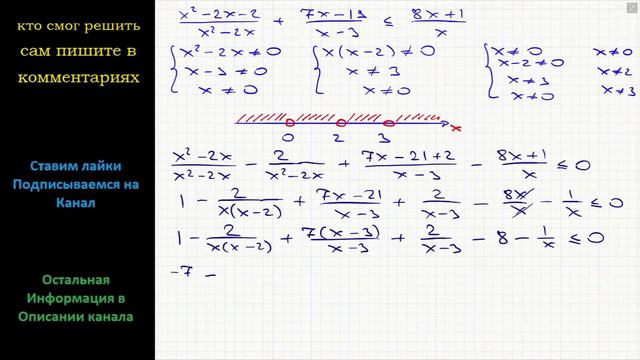 кто смог решить
сам пишите в
комментариях
Ставим лайки
Подписываемся на
Канал
Остальная
Информация в
Описании канала
(x²-2x-2)/(x²-2x) + (7x-19)/(x-3) ≤ (8x+1)/x
{ x²-2x≠0 { x(x-2)≠0 { x≠0 x≠0
x-3≠0 x≠3 x-2≠0 x≠2
x≠0 x≠0 x≠3 x≠3
x≠0
0 2 3 x
(x²-2x)/(x²-2x) - 2/(x²-2x) + (7x-21+2)/(x-3) - (8x+1)/x ≤0
1 - 2/(x(x-2)) + (7x-21)/(x-3) + 2/(x-3) - 8x/x - 1/x ≤0
1 - 2/(x(x-2)) + 7(x-3)/(x-3) + 2/(x-3) - 8 - 1/x ≤0
-7 -